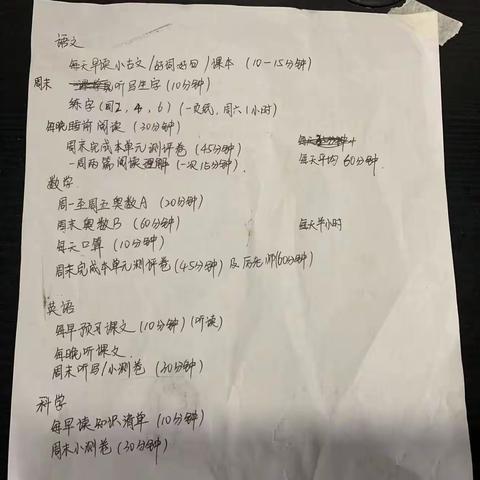 语文
每天早读小古文/好词好句/课本 (10-15分钟)
周末 听写生字 (10分钟)
练字 (周2, 4, 6) (一页纸, 周六1小时)
每晚睡前阅读 (30分钟)
周末完成本单元测评卷 (45分钟)
一周两篇阅读理解 (一次15分钟) 每天平均60分钟
数学
周一至周五奥数A (20分钟)
周末奥数B (60分钟) 每天半小时
每天口算 (10分钟)
周末完成本单元测评卷 (45分钟) 及 (60分钟)
英语
每早预习课文 (10分钟) (听读)
每晚听课文
周末听写/小测卷 (30分钟)
科学
每早读知识清单 (10分钟)
周末小测卷 (30分钟)